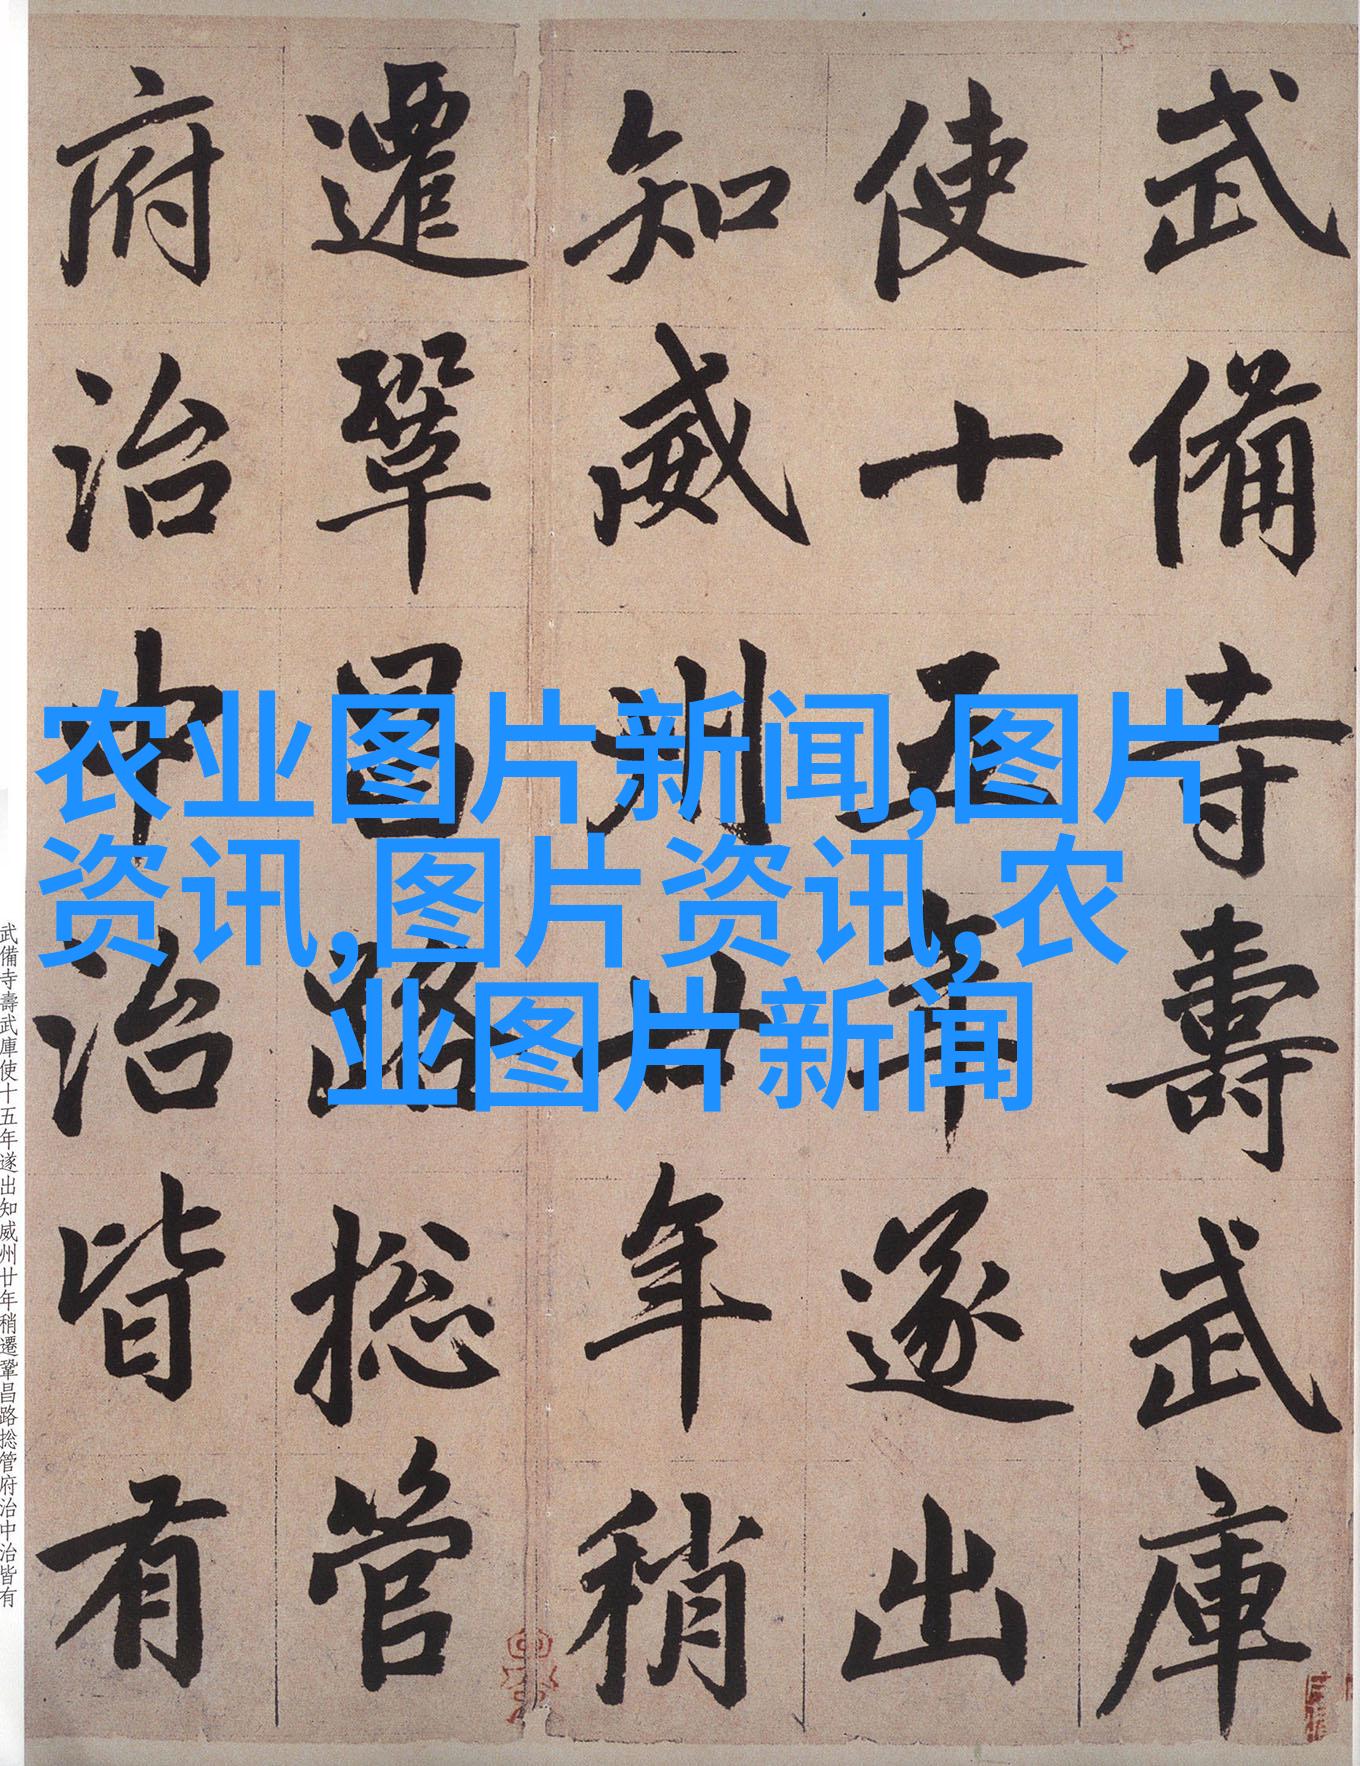 武備寺壽武庫
使十五年遂出
知威州廿年稍
遷鞏昌路捴管
府治中治皆有
农业图片新闻,图片
资讯,图片资讯,农
业图片新闻
武備寺壽武庫使十五年遂出知威州廿年稍遷鞏昌路捴管府治中治皆有